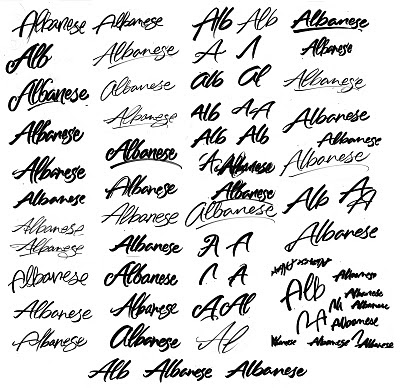 Albanese Albanese Alb Alb Albanese
Alb Albanese A Albanese
Albanese Albanese alb al Albanese
Albanese Albanese Alb A A Albanese
Albanese Albanese Alb Alb Albanese
Albanese Albanese A Albanese Albanese
Albanese Albanese Albanese Alb A A
Albanese Albanese A A Albanese
Albanese Albanese A
Albanese Albanese A Al Alb Albanese
Albanese Albanese Al Albanese Albanese
Albanese Albanese
Alb Albanese Albanese